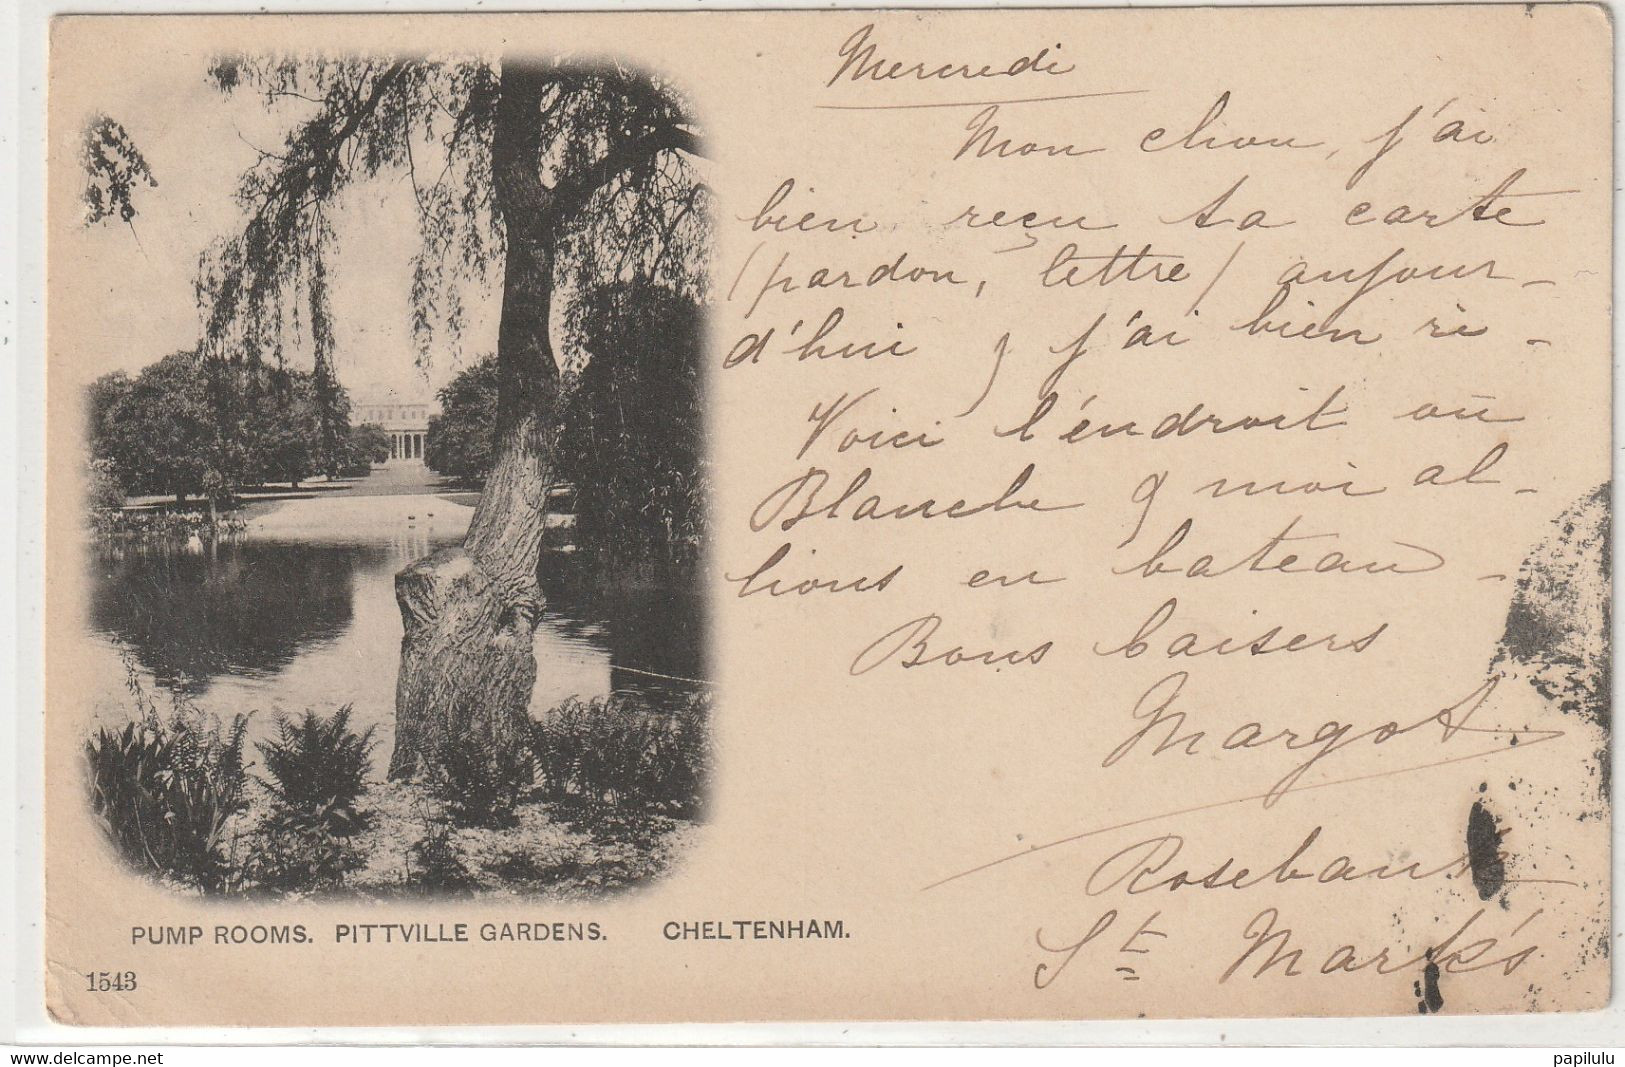 Mercredi
Mon chou, j'ai
bien reçu ta carte
(pardon, lettre) aujour-
d'hui & j'ai bien ri -
Voici l'endroit où
Blanche & moi al-
lions en bateau -
Bons baisers
Margot.
Rosebank
St Mark's
PUMP ROOMS. PITTVILLE GARDENS. CHELTENHAM.
1543
www.delcampe.net
papilulu